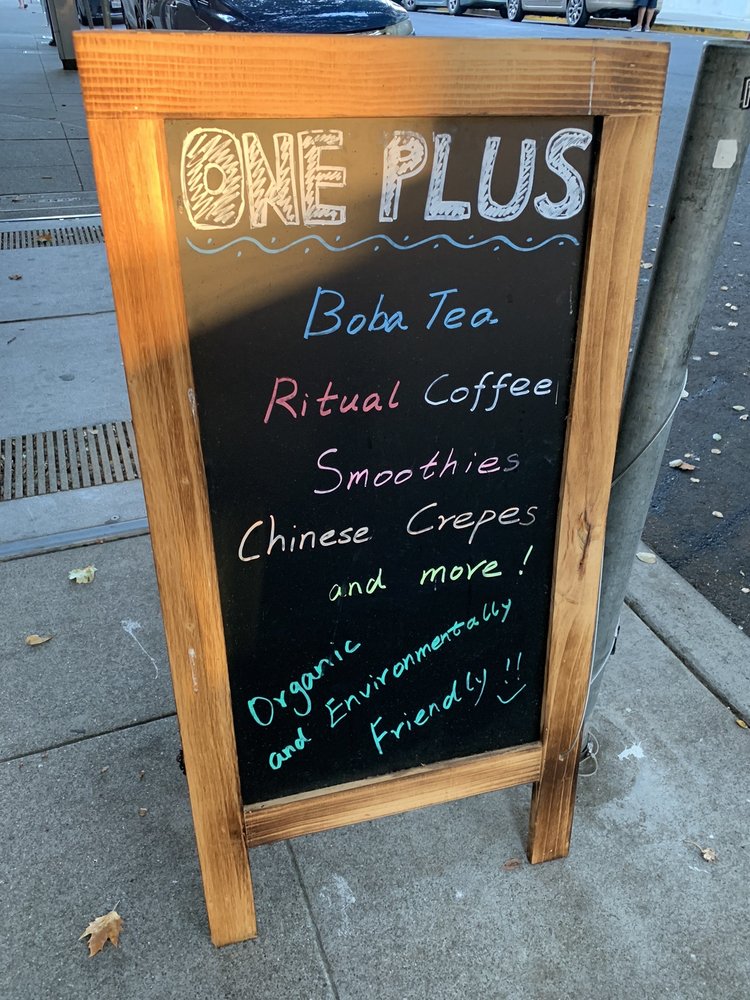 ONE PLUS
Boba Tea
Ritual Coffee
Smoothies
Chinese Crepes
and more!
Organic
and Environmentally
Friendly!!